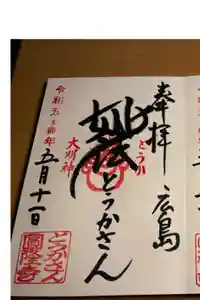 奉拝 広島
とうか
妙法
とうかさん
大明神
令和五癸卯年
五月十一日
とうかさん
圓隆寺